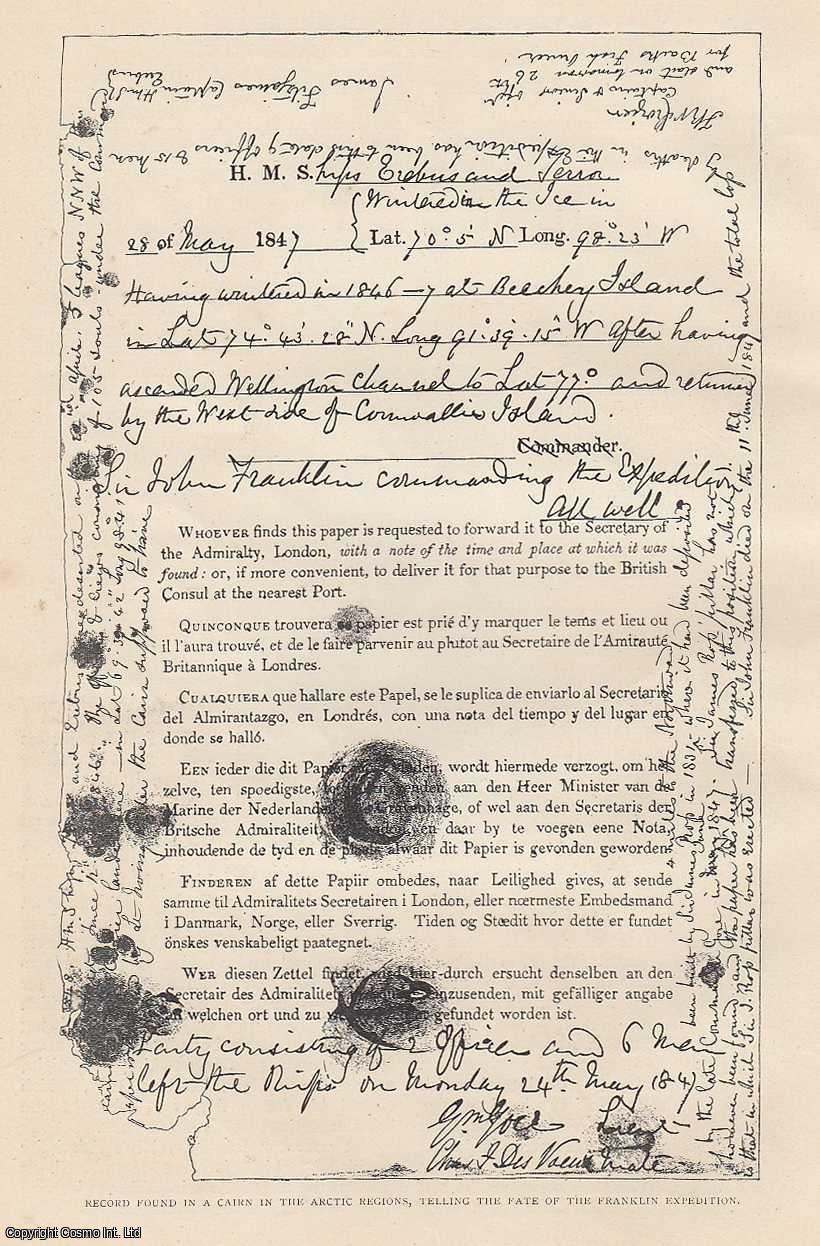 H. M. S.hips Erebus and Terror
Wintered in the Ice in
28 of May 1847 Lat. 70° 5' N Long. 98° 23' W
Having wintered in 1846-7 at Beechey Island
in Lat 74° 43' 28" N. Long 91° 39' 15" W After having
ascended Wellington Channel to Lat 77° and returned
by the West side of Cornwallis Island.
Commander.
Sir John Franklin commanding the Expedition
All well
WHOEVER finds this paper is requested to forward it to the Secretary of
the Admiralty, London, with a note of the time and place at which it was
found: or, if more convenient, to deliver it for that purpose to the British
Consul at the nearest Port.
QUINCONQUE trouvera ce papier est prié d'y marquer le tems et lieu ou
il l'aura trouvé, et de le faire parvenir au plutot au Secretaire de l'Amirauté
Britannique à Londres.
CUALQUIERA que hallare este Papel, se le suplica de enviarlo al Secretario
del Almirantazgo, en Londrés, con una nota del tiempo y del lugar en
donde se halló.
EEN ieder die dit Papier vinden, wordt hiermede verzogt, om het
zelve, ten spoedigste, te zenden aan den Heer Minister van de
Marine der Nederlanden Gravenhage, of wel aan den Secretaris der
Britsche Admiraliteit, London, en daar by te voegen eene Nota,
inhoudende de tyd en de plaats alwaar dit Papier is gevonden geworden.
FINDEREN af dette Papiir ombedes, naar Leilighed gives, at sende
samme til Admiralitets Secretairen i London, eller nœrmeste Embedsmand
i Danmark, Norge, eller Sverrig. Tiden og Stœdit hvor dette er fundet
önskes venskabeligt paategnet.
WER diesen Zettel findet, wird hier-durch ersucht denselben an den
Secretair des Admiralitets einzusenden, mit gefälliger angabe
an welchen ort und zu gefundet worden ist.
Party consisting of 2 Officers and 6 Men
left the Ships on Monday 24th May 1847
Gm Gore Lieut
Chas F Des Voeux Mate
4 miles to the Northward
been built by Sir James Ross in 1831 where it had been deposited
by the late Commander Gore in June 1847. Sir James Ross' pillar has not
however been found and the paper has been transferred to this position which
is that in which Sir J. Ross pillar was erected — Sir John Franklin died on the 11th June 1847 and the total loss
by deaths in the Expedition has been to this date 9 officers & 15 men
James Fitzjames Captain HMS Erebus
Captain & Senior Offr
and start on tomorrow 26th
for Backs Fish River
RECORD FOUND IN A CAIRN IN THE ARCTIC REGIONS, TELLING THE FATE OF THE FRANKLIN EXPEDITION.
Copyright Cosmo Int. Ltd